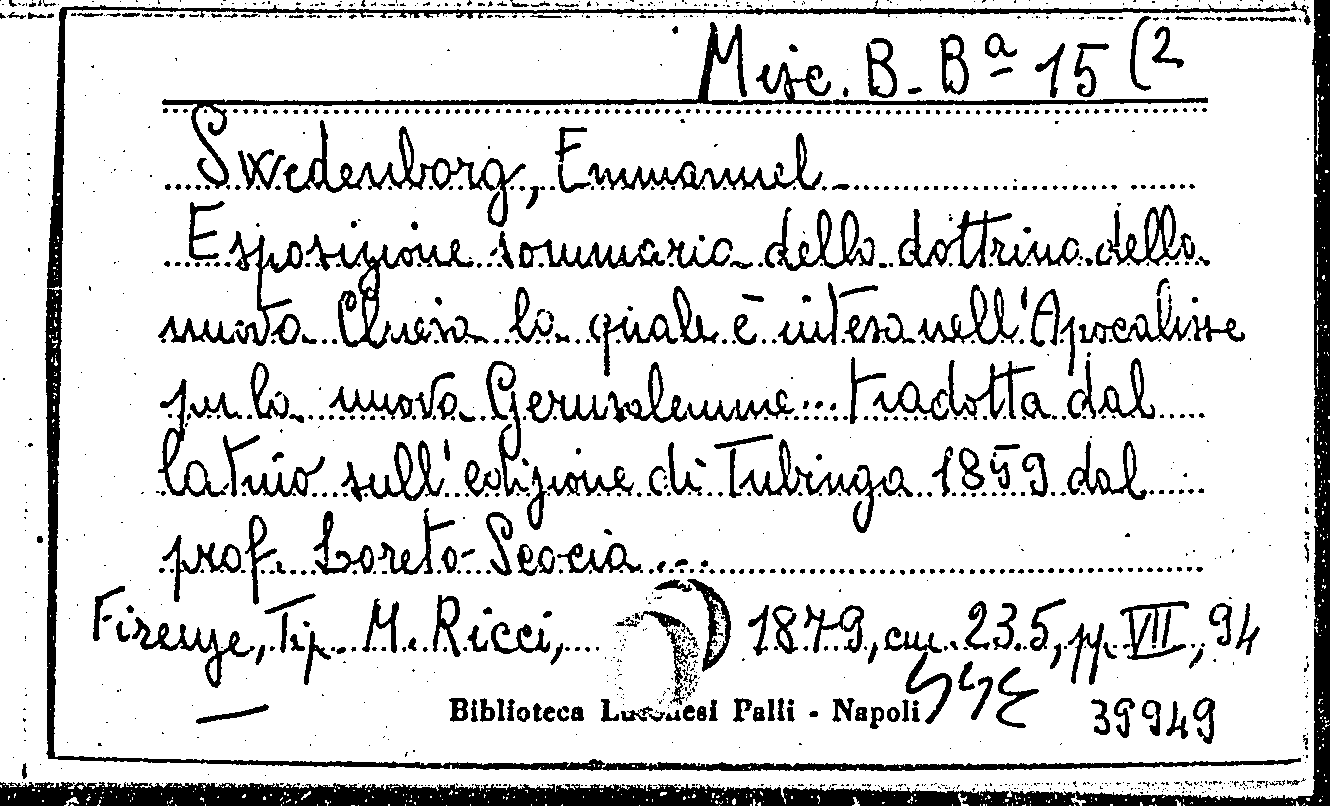 Misc. B. Bª 15 (2
Swedenborg, Emmanuel
Esposizione sommaria della dottrina della
nuova Chiesa la quale è intesa nell'Apocalisse
per la nuova Gerusalemme... tradotta dal
latino sull'edizione di Tubinga 1859 dal
prof. Loreto Scocia...
Firenze, Tip. M. Ricci, 1879, cm. 23.5, pp. VII, 94
Biblioteca Lucchesi Palli - Napoli
39949